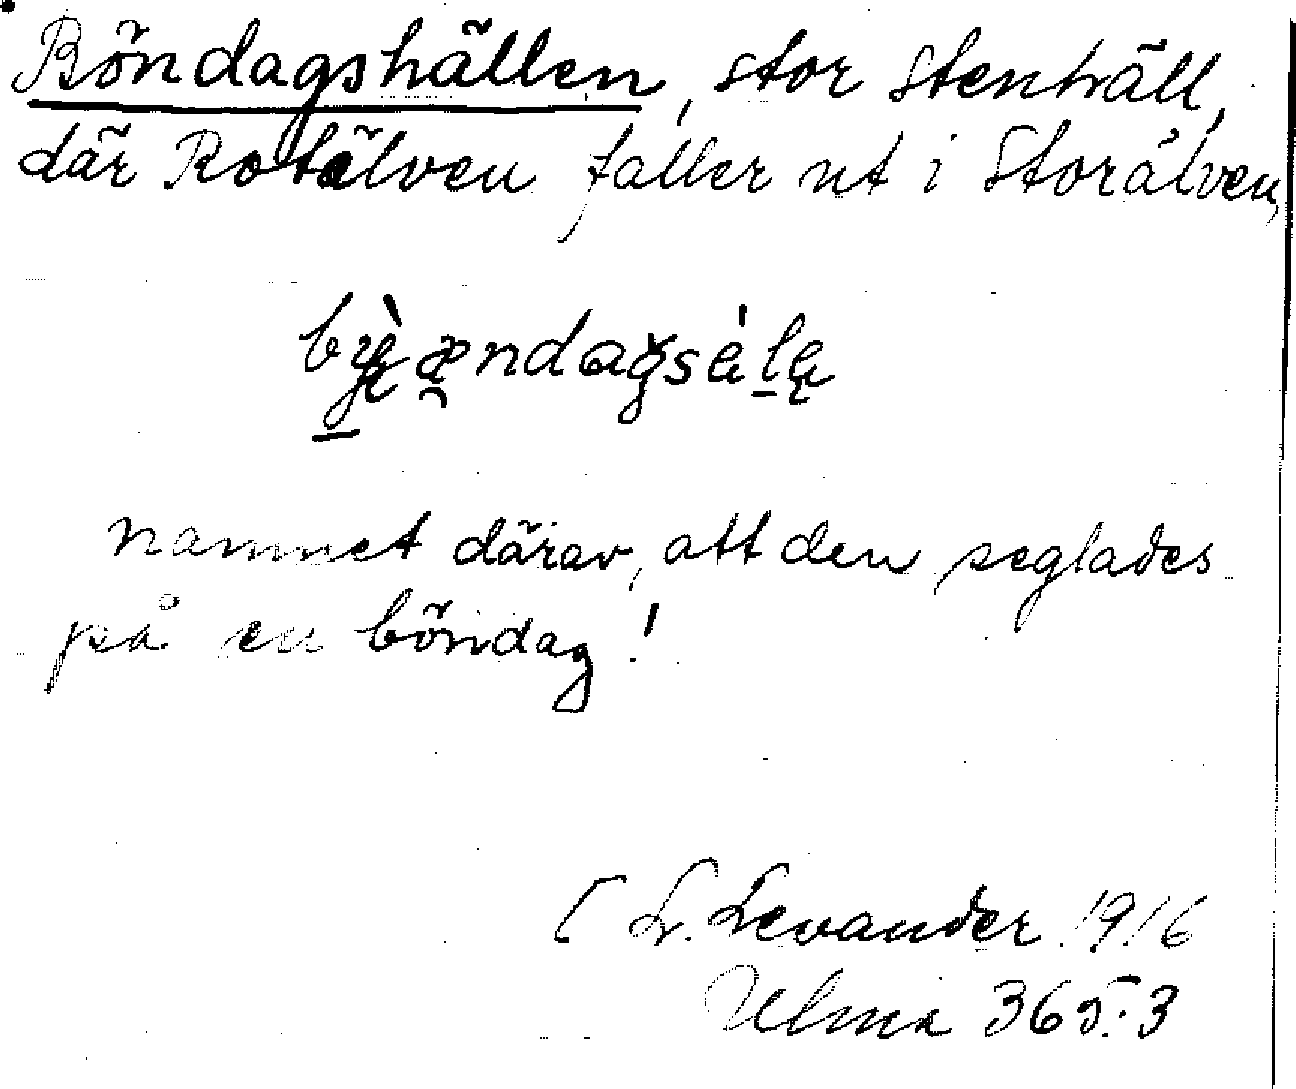 Böndagshällen, stor stenhäll,
där Rotälven faller ut i Storälven,
namnet därav, att den seglades
på en böndag!
[L. Levander 1916
Ulma 365:3